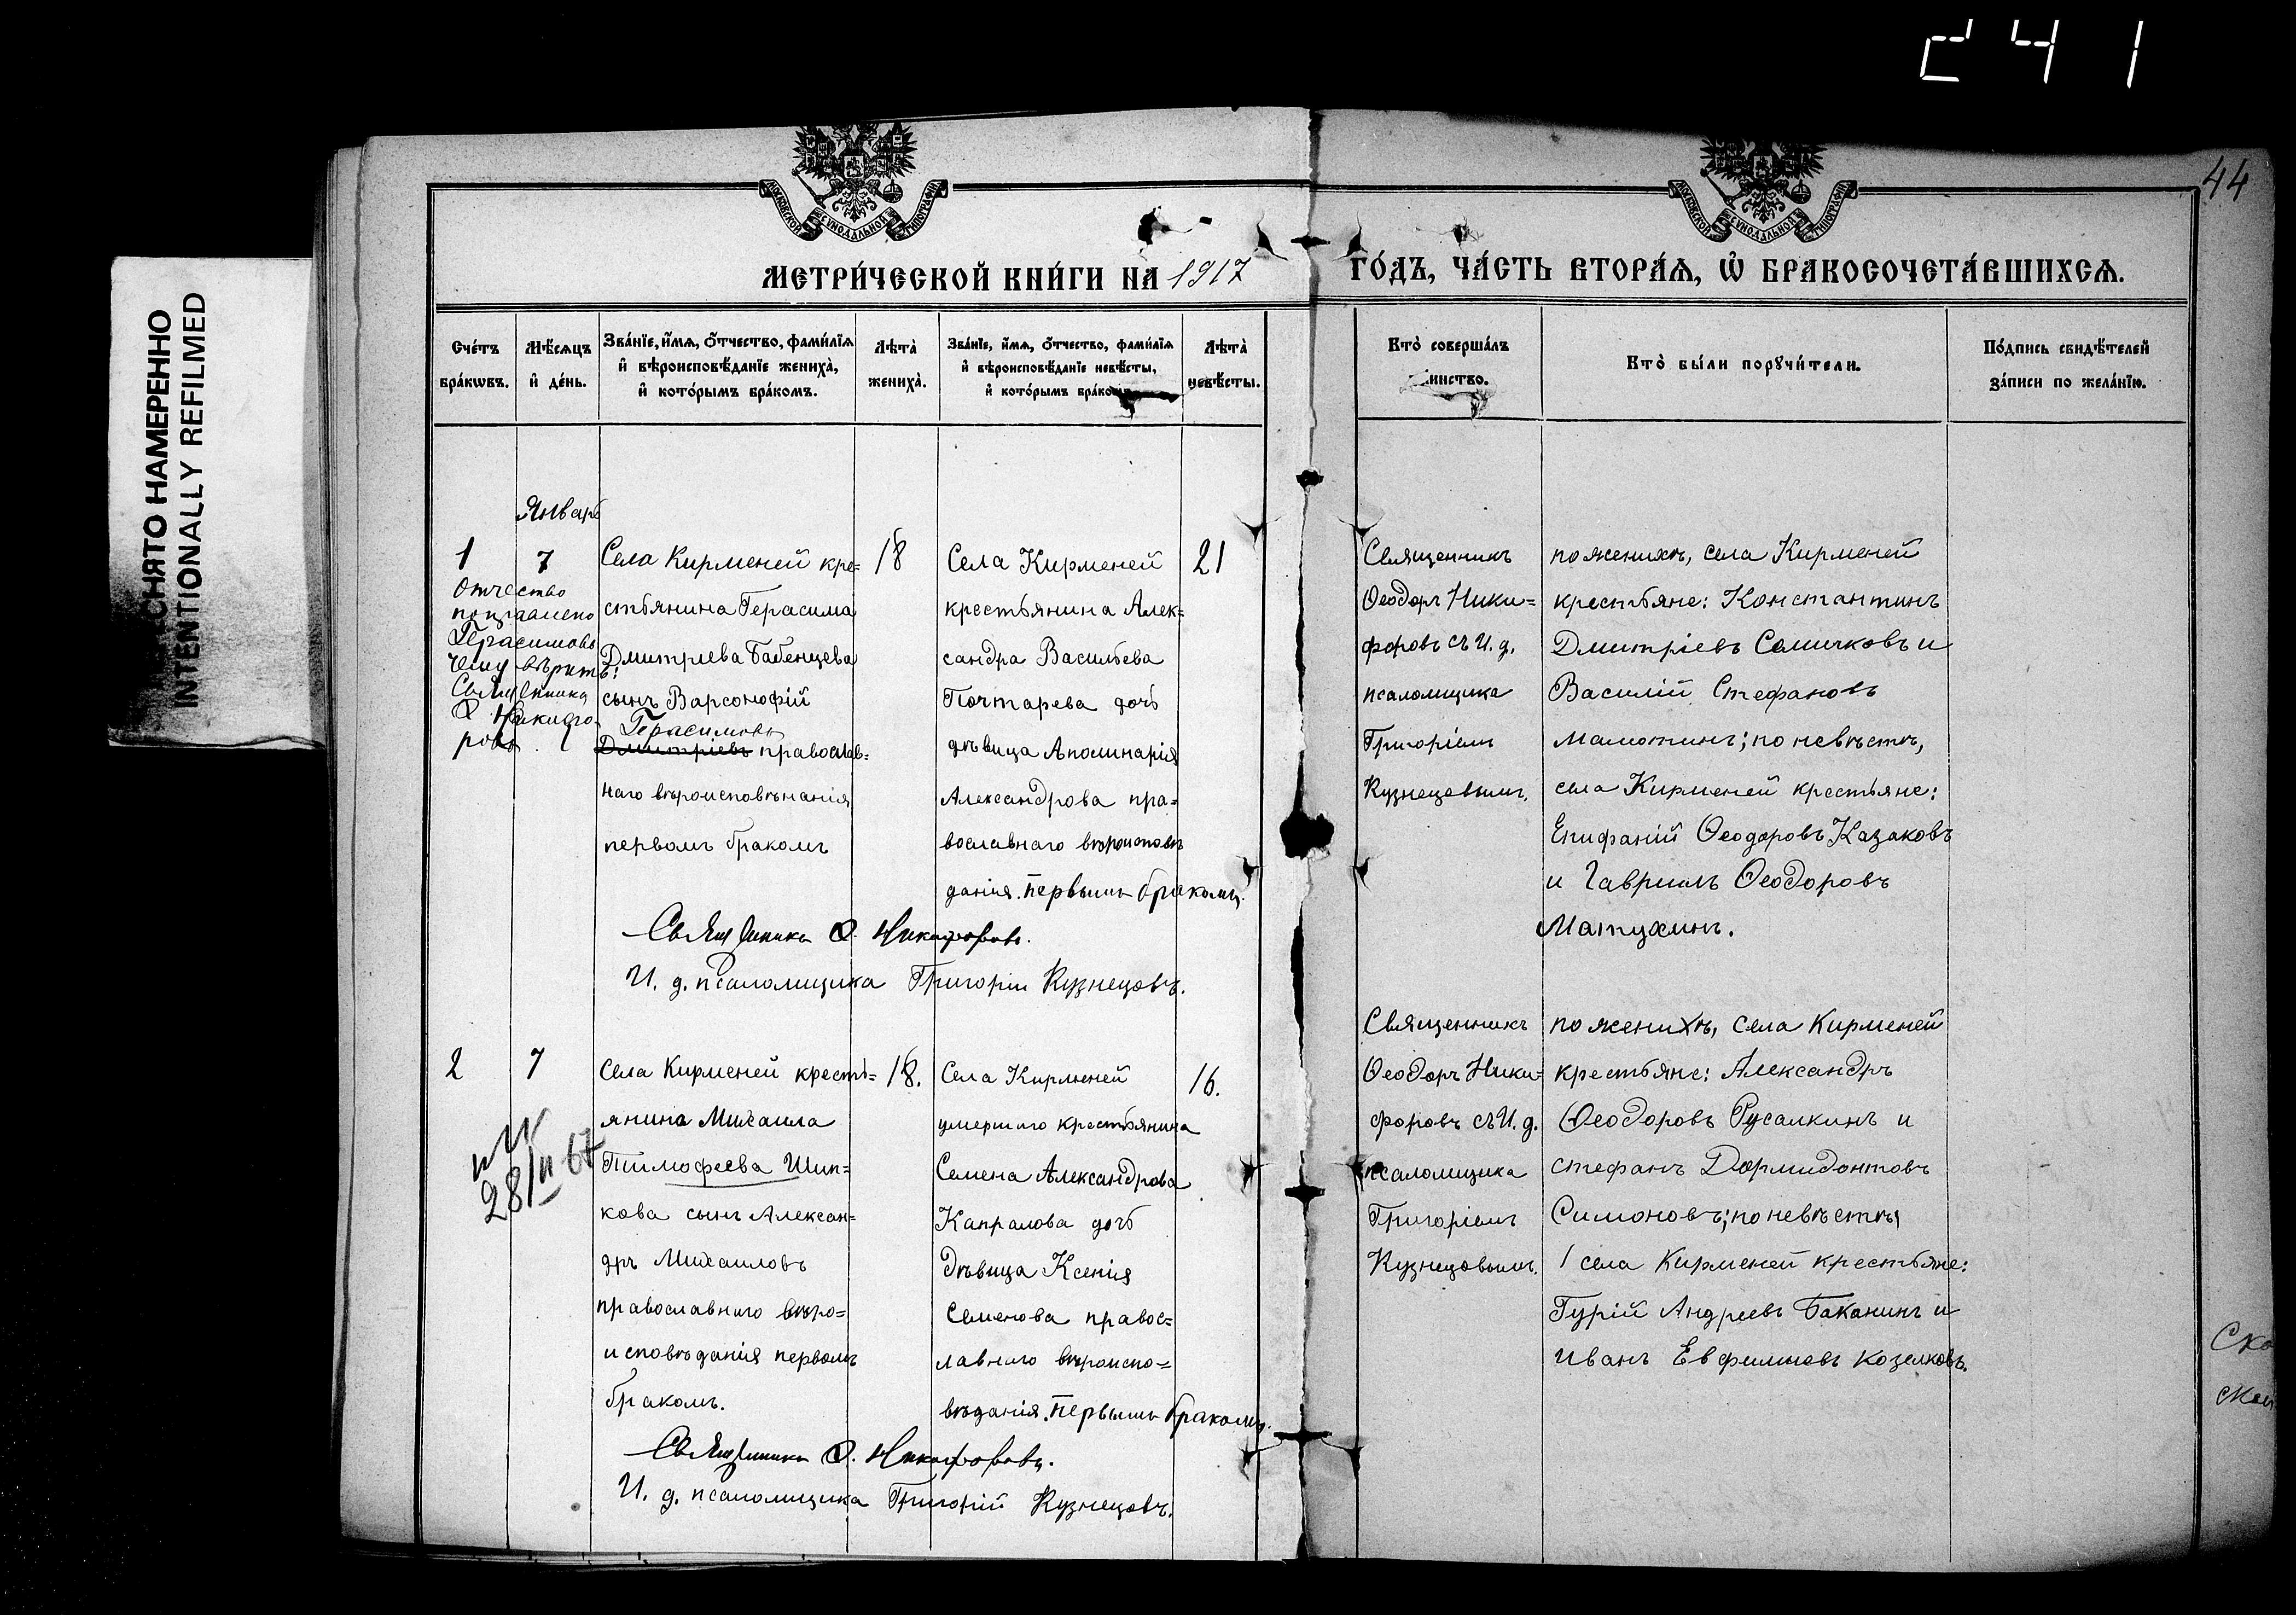 241
44
СНЯТО НАМЕРЕННО
INTENTIONALLY REFILMED
МОСКОВСКОЙ СѴНОДАЛЬНОЙ ТИПОГРАФІИ
МОСКОВСКОЙ СѴНОДАЛЬНОЙ ТИПОГРАФІИ
МЕТРИ́ЧЕСКОЙ КНИ́ГИ НА 1917 ГО́ДЪ, ЧА́СТЬ ВТОРА́Я, Ѡ҆ БРАКОСОЧЕТА́ВШИХСѦ.
Сче́тъ
бра́кѡвъ.
Мѣ́сяцъ
и҆ де́нь.
Зва́нїе, и҆́мѧ, ѻ҆́тчество, фами́лїѧ
и҆ вѣроисповѣ́данїе жениха̀,
и҆ кото́рымъ бра́комъ.
Лѣ́та
жениха̀.
Зва́нїе, и҆́мѧ, ѻ҆́тчество, фами́лїѧ
и҆ вѣроисповѣ́данїе невѣ́сты,
и҆ кото́рымъ бра́комъ.
Лѣ́та
невѣ́сты.
Кто̀ соверша́лъ
инство.
Кто̀ бы́ли порꙋчи́тели.
По́дпись свидѣ́телей
за́писи по жела́нїю.
Январь
1
7
Отчество
поправлено
Герасимовъ
чему вѣрить:
Священникъ
Ѳ. Никифо
ровъ.
Села Кирменей кре=
стьянина Герасима
Дмитріева Бабенцева
сынъ Варсонофій
Герасимовъ
Дмитріевъ православ=
наго вѣроисповѣнанія
первомъ бракомъ
18
Села Кирменей
крестьянина Алек=
сандра Васильева
Почтарева дочь
дѣвица Аполинарія
Александрова пра=
вославнаго вѣроисповѣ
данія. первымъ бракомъ.
21
Священникъ
Ѳеодоръ Ники=
форовъ съ И. д.
псаломщика
Григоріемъ
Кузнецовымъ.
по женихѣ, села Кирменей
крестьяне: Константинъ
Дмитріевъ Семичковъ и
Василій Стефановъ
Мамотинъ; по невѣстѣ,
села Кирменей крестьяне:
Епифаній Ѳеодоровъ Казаковъ
и Гавриилъ Ѳеодоровъ
Матухинъ.
Священникъ Ѳ. Никифоровъ.
И. д. псаломщика Григорій Кузнецовъ.
2
7
28/II 67
Села Кирменей кресть=
янина Михаила
Тимофеева Шип=
кова сынъ Алексан=
дръ Михаиловъ
православнаго вѣро=
исповѣданія первомъ
бракомъ.
18.
Села Кирменей
умершаго крестьянина
Семена Александрова
Капралова дочь
дѣвица Ксенія
Семенова правос=
лавнаго вѣроиспо=
вѣданія. первымъ бракомъ.
16.
Священникъ
Ѳеодоръ Ники=
форовъ съ И. д.
псаломщика
Григоріемъ
Кузнецовымъ.
по женихѣ, села Кирменей
крестьяне: Александръ
Ѳеодоровъ Русалкинъ и
стефанъ Дормидонтовъ
Симоновъ; по невѣстѣ,
села Кирменей крестьяне:
Гурій Андреевъ Баканинъ и
Иванъ Евфимовъ Козелковъ.
Священникъ Ѳ. Никифоровъ.
И. д. псаломщика Григорій Кузнецовъ.